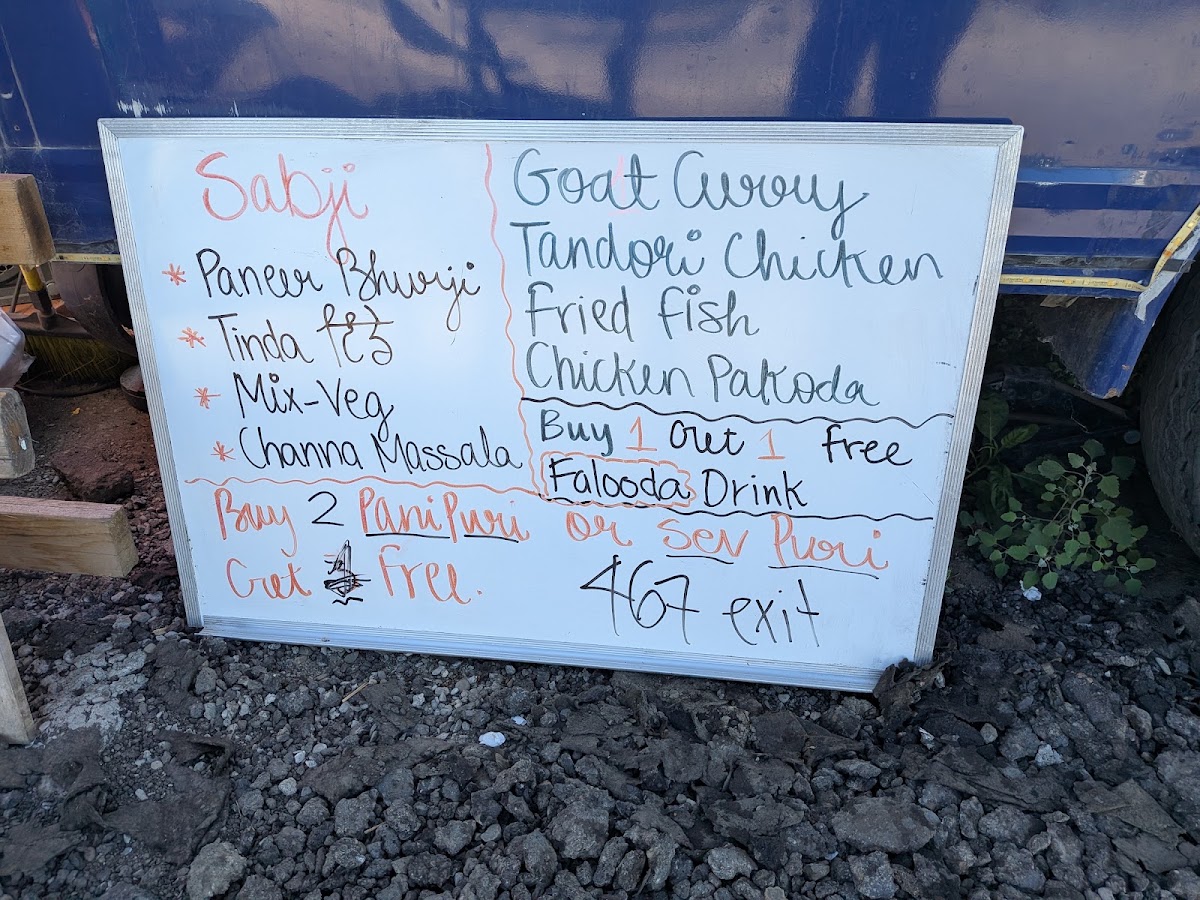 Sabji
* Paneer Bhurji
* Tinda
* Mix-Veg
* Channa Massala
Goat Curry
Tandori Chicken
Fried Fish
Chicken Pakoda
Buy 1 Get 1 free
Falooda Drink
Buy 2 Pani Puri or Sev Puri
Get 1 Free.
467 exit